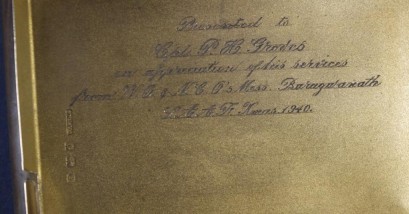 Presented to
Cpl P. H. Groves
in appreciation of his services
from W. O's & N. C. O's Mess. Baragwanath
S. A. A. F. Xmas. 1940.